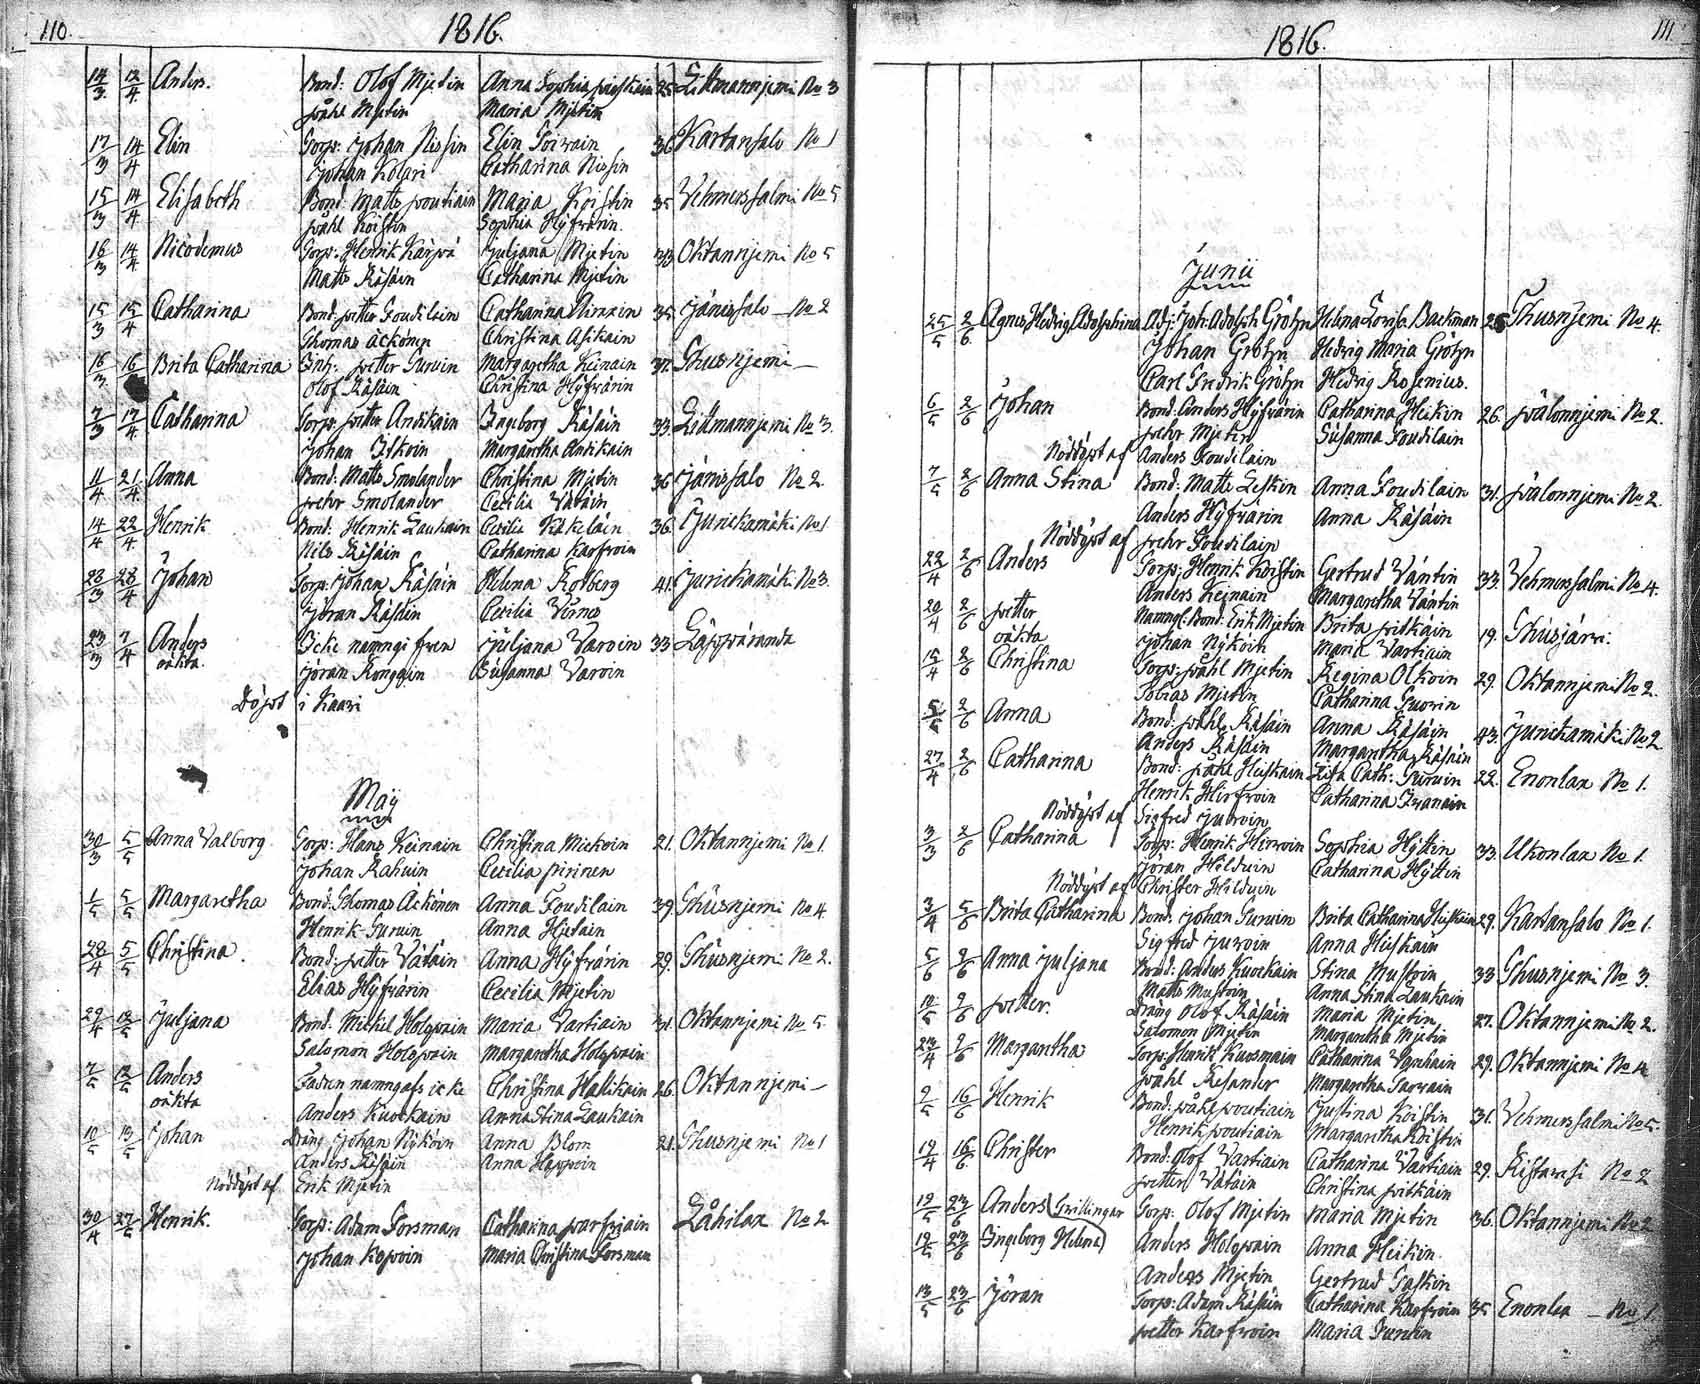 110.
1816.
14/3 12/4 Anders. Bond: Olof Mjetin Anna Sophia 35 Littmannjemi No 3
påhl Mjetin Maria Mjetin
17/3 14/4 Elin Torp: Johan Nissin Elin Toivain 36 Kartansalo No 1
Johan Kolari Catharina Nissin
15/3 14/4 Elisabeth Bond: Matts poutiain Maria Koistin 35 Vehmersalmi No 5
påhl Koistin Sophia Hyfvärin.
16/3 14/4 Nicodemus Torp: Henrik Kärpä Juljana Mjetin 33 Oktannjemi No 5
Matts Räsäin Catharina Mjetin
15/3 15/4 Catharina Bond: petter Foudilain Catharina 35 Jänissalo No 2
Thomas Äckönen Christina Asikain
16/3 16 Brita Catharina Inh: petter Turuin Margaretha Keinain 37. Thusnjemi
Olof Räsäin Christina Hyfvärin
7/3 17/4 Catharina Torp: petter Andikain Ingeborg Räsäin 33. Littmannjemi No 3.
Johan Itkoin Margaretha Antikain
11/4 21/4 Anna Bond: Matts Smolander Christina Mjetin 36 Jänissalo No 2
petter Smolander Cecilia Vätäin
14/4 22/4 Henrik Bond: Henrik Laukain Cecilia Käkeläin 36. Jurickamäki No 1
Nils Räsäin Catharina Karfvoin
28/3 28/4 Johan Torp: Johan Räsäin Helena Kolberg 41. Jurickamäki No 3.
Jöran Räsäin Cecilia
23/3 7/4 Anders Icke namngifven Juljana Varoin 33 Läppäranda
oäkta. Jöran Kongain Susanna Varoin
Döpt i Kaavi
Maÿ
30/3 5/5 Anna Valborg Torp: Hans Keinain Christina Mickoin 21. Oktannjemi No 1.
Johan Rahuin Cecilia pirinen
1/5 5/5 Margaretha Bond: Thomas Äckönen Anna Foudilain 39. Thusnjemi No 4
Henrik Turuin Anna Hjetain
28/4 5/5 Christina. Bond: petter Vätäin Anna Hyfvärin 29. Thusnjemi No 2.
Elias Hyfvärin Cecilia Mjetin
29/4 12/5 Juljana Bond: Mickel Holopain Maria Vartiain 31. Oktannjemi No 5.
Salomon Holopain Margaretha Holopain
7/5 12/5 Anders Fadren namngafs icke Christina Hallikain 26. Oktannjemi
oäkta Anders Kuockain Anna Stina Laukain
10/5 13/5 Johan Dräng Johan Nykoin Anna Blom 21. Thusnjemi No 1
Anders Räsäin Anna Happoin
Nöddöpt af Erik Mjetin
30/4 27/5 Henrik. Torp: Adam Forsman Catharina parfviain Låhilax No 2
Johan Kopoin Maria Christina Forsman
111
1816.
Junii
25/5 2/6 Agnes Hedvig Adolphina Adj: Joh: Adolph Gröhn Helena Lovisa Backman 25 Thusnjemi No 4.
Johan Gröhn Hedvig Maria Gröhn
Carl Fredrik Gröhn Hedvig Rosenius.
6/5 2/6 Johan Bond: Anders Hyfvärin Catharina Heikin 26. pälonnjemi No 2.
petter Mjetin Susanna Foudilain
Nöddöpt af Anders Foudilain
7/5 2/6 Anna Stina Bond: Matts Leskin Anna Foudilain 31. pälonnjemi No 2.
Anders Hyfvärin Anna Räsäin
Nöddöpt af petter Foudilain
22/4 2/6 Anders Torp: Henrik Koistin Gertrud Väntin 33. Vehmersalmi No 4.
Anders Keinain Margaretha Väntin
20/4 2/6 petter Namngl: Bond: Erik Mjetin Brita pitkäin 19. Thusjärvi.
oäkta Johan Nykoin Maria Vartiain
15/4 2/6 Christina Torp: påhl Mjetin Regina Olkoin 29. Oktannjemi No 2.
Tobias Mjetin Catharina Tuovin
5/5 2/6 Anna Bond: påhl Räsäin Anna Räsäin 43. Jurickamäki No 2
Anders Räsäin Margaretha Räsäin
27/4 2/6 Catharina Bond: påhl Heiskain Lisa Cath: Turuin 22. Enonlax No 1.
Henrik Hirfvoin Catharina Ivanain
Nöddöpt af Sigfred Juvoin
3/3 2/6 Catharina Torp: Henrik Hirvoin Sophia Hyttin 33. Ukonlax No 1.
Jöran Hilduin Catharina Hyttin
Nöddöpt af Christer Hilduin
3/4 5/6 Brita Catharina Bond: Johan Turuin Brita Catharina Heiskain 29. Kartansalo No 1.
Sigfred Juvoin Anna Heiskain
5/6 9/6 Anna Juljana Bond: Anders Kuockain Stina Mustoin 33 Thusnjemi No 3.
Matts Mustoin Anna Stina Laukain
11/5 9/6 petter. Dräng Olof Räsäin Maria Mjetin 27. Oktannjemi No 2.
Salomon Mjetin Margaretha Mjetin
23/4 9/6 Margaretha Torp: Henrik Kuosmain Catharina 29. Oktannjemi No 4
påhl Resander Margaretha Sarvain
9/5 16/6 Henrik Bond: påhl poutiain Justina Koistin 31. Vehmersalmi No 5.
Henrik poutiain Margaretha Koistin
19/4 16/6 Christer Bond: Olof Vartiain Catharina Vartiain 29. Ristavesi No 2
petter Vätäin Christina pitkäin
19/5 23/6 Anders Tvillingar Torp: Olof Mjetin Maria Mjetin 36. Oktannjemi No 2
19/5 23/6 Ingeborg Helena Anders Holopain Anna Heikin.
Anders Mjetin Gertrud Taskin
13/5 23/6 Jöran Torp: Adam Räsäin Catharina Karfvoin 35. Enonlax No 1.
petter Karfvoin Maria